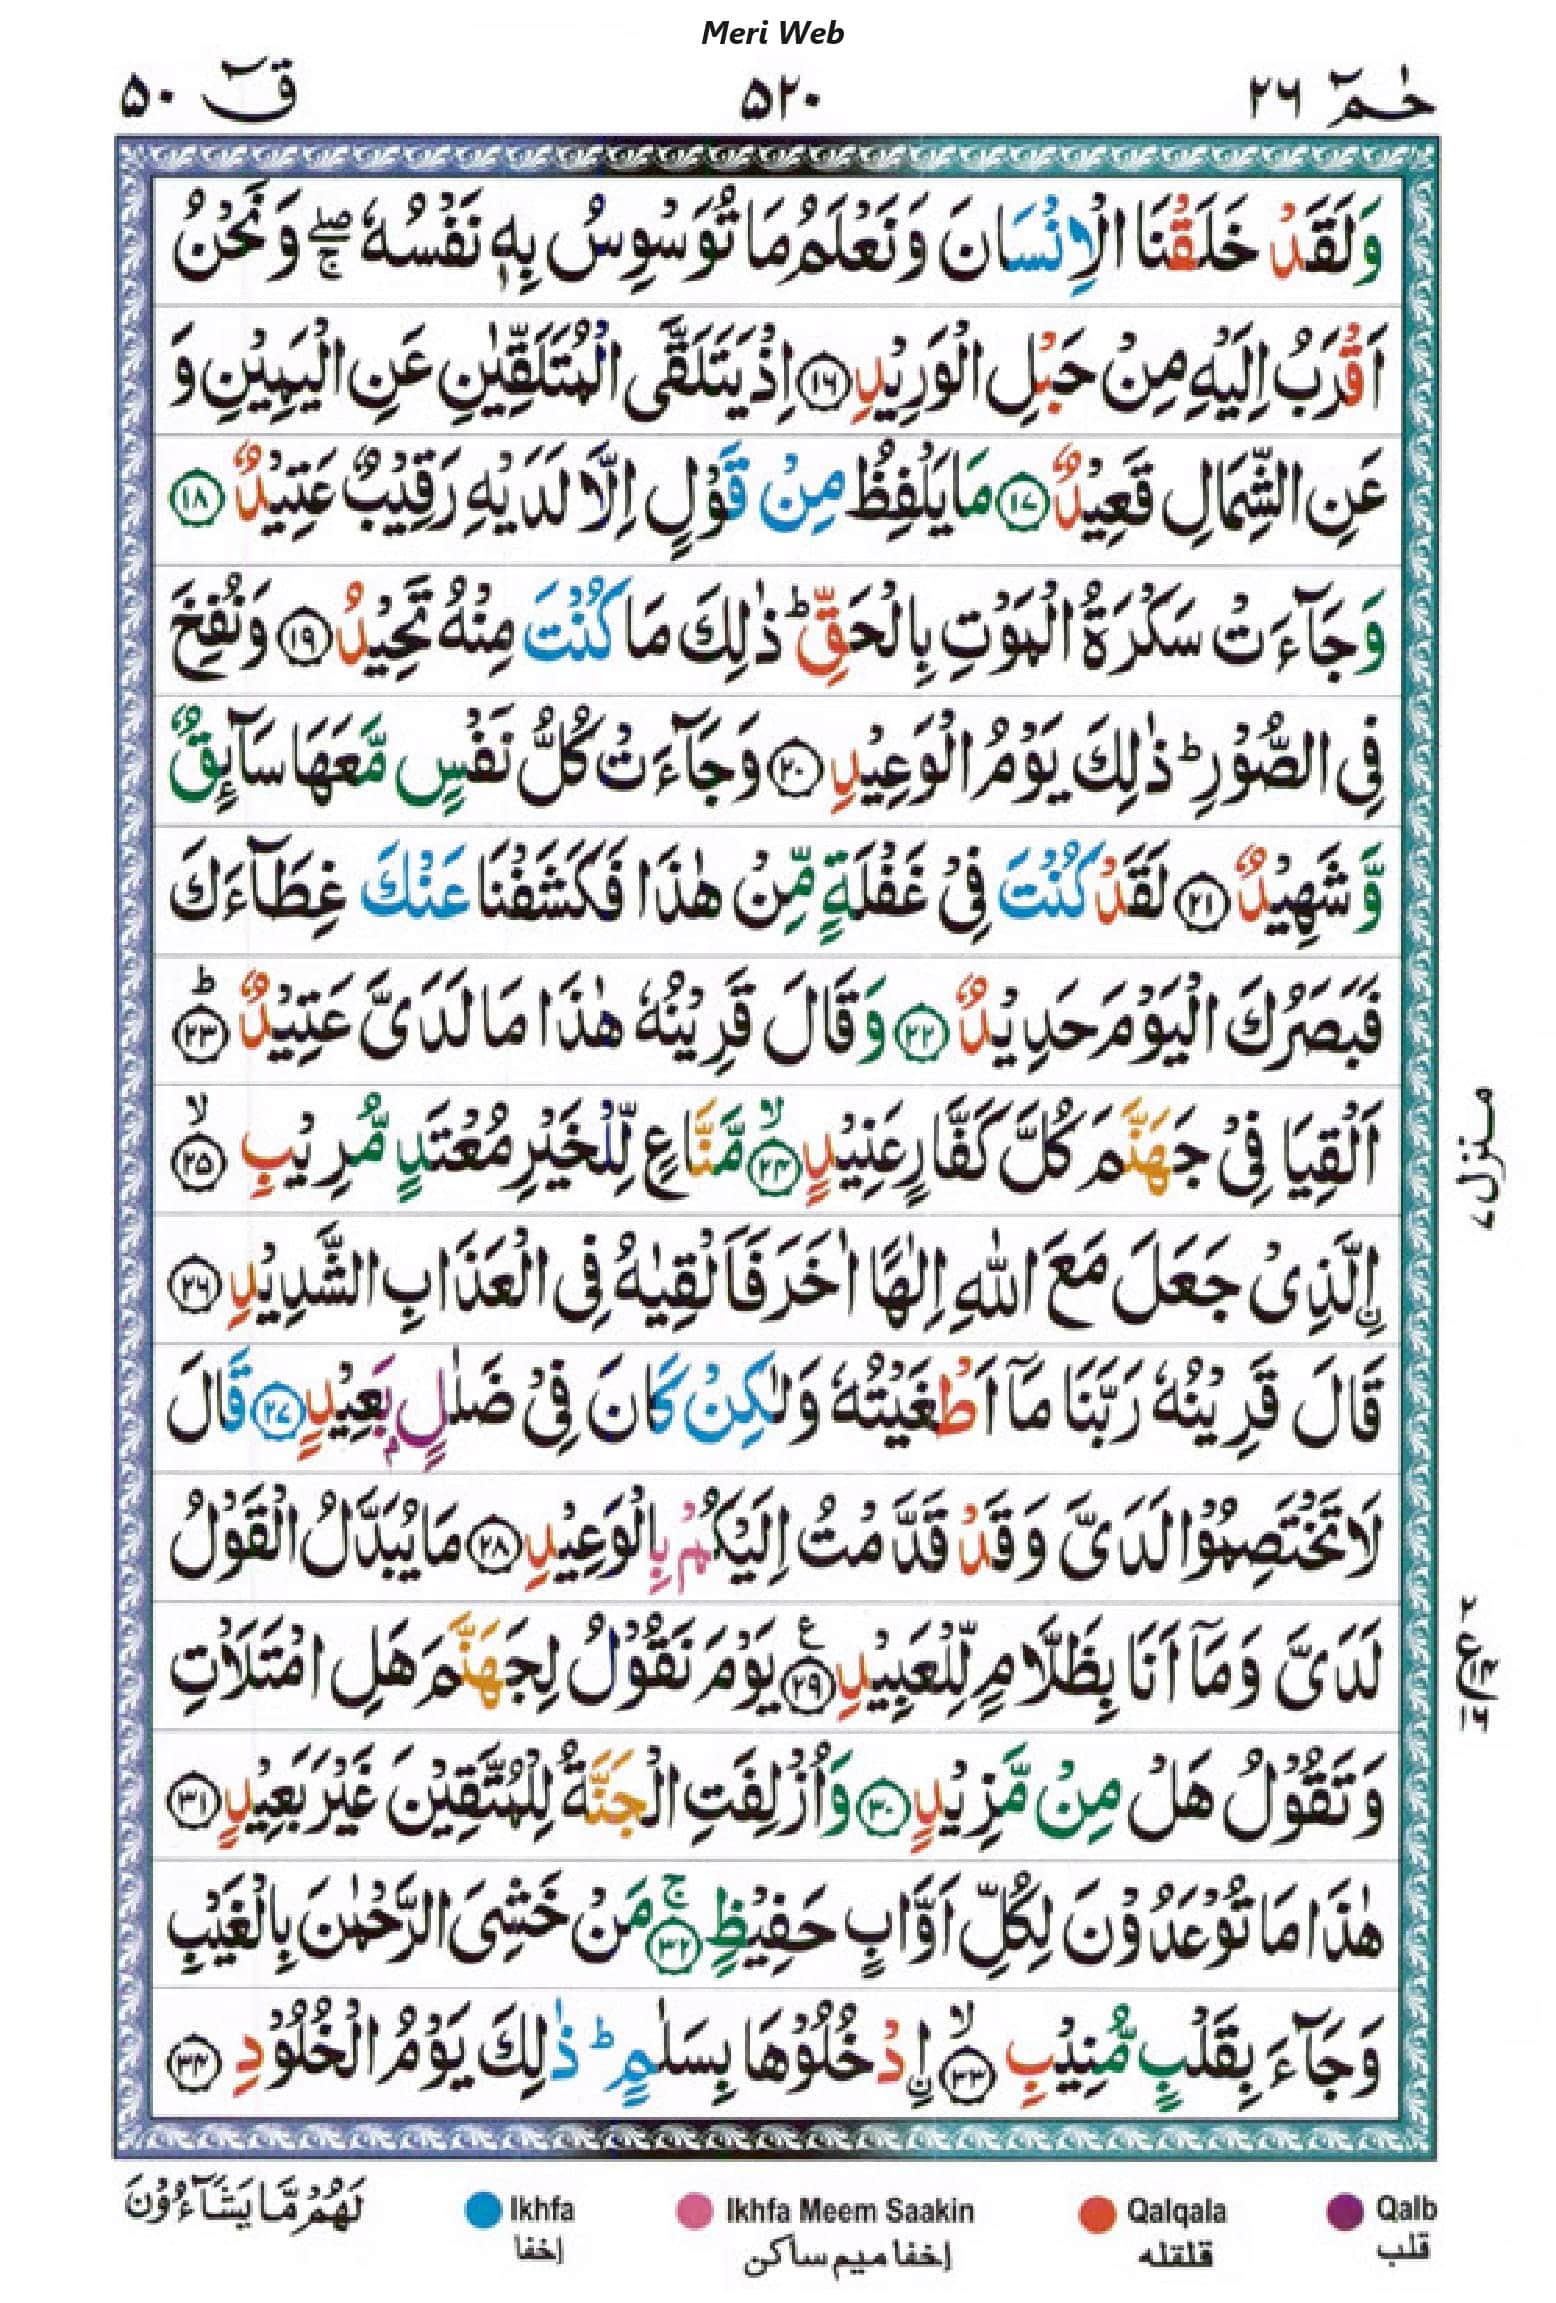 Meri Web
حٰمٓ ٢٦
٥٢٠
قٓ ٥٠
وَلَقَدْ خَلَقْنَا الْاِنْسَانَ وَنَعْلَمُ مَا تُوَسْوِسُ بِهٖ نَفْسُهٗ ۖۚ وَنَحْنُ
اَقْرَبُ اِلَيْهِ مِنْ حَبْلِ الْوَرِيْدِ ١٦ اِذْ يَتَلَقَّى الْمُتَلَقِّيٰنِ عَنِ الْيَمِيْنِ وَ
عَنِ الشِّمَالِ قَعِيْدٌ ١٧ مَا يَلْفِظُ مِنْ قَوْلٍ اِلَّا لَدَيْهِ رَقِيْبٌ عَتِيْدٌ ١٨
وَ جَآءَتْ سَكْرَةُ الْمَوْتِ بِالْحَقِّ ؕ ذٰلِكَ مَا كُنْتَ مِنْهُ تَحِيْدُ ١٩ وَنُفِخَ
فِى الصُّوْرِ ؕ ذٰلِكَ يَوْمُ الْوَعِيْدِ ٢٠ وَجَآءَتْ كُلُّ نَفْسٍ مَّعَهَا سَآئِقٌ
وَّ شَهِيْدٌ ٢١ لَقَدْ كُنْتَ فِىْ غَفْلَةٍ مِّنْ هٰذَا فَكَشَفْنَا عَنْكَ غِطَآءَكَ
فَبَصَرُكَ الْيَوْمَ حَدِيْدٌ ٢٢ وَقَالَ قَرِيْنُهٗ هٰذَا مَا لَدَىَّ عَتِيْدٌ ؕ ٢٣
اَلْقِيَا فِىْ جَهَنَّمَ كُلَّ كَفَّارٍ عَنِيْدٍ ۙ ٢٤ مَّنَّاعٍ لِّلْخَيْرِ مُعْتَدٍ مُّرِيْبٍ ۙ ٢٥
اِۨلَّذِىْ جَعَلَ مَعَ اللّٰهِ اِلٰهًا اٰخَرَ فَاَلْقِيٰهُ فِى الْعَذَابِ الشَّدِيْدِ ٢٦
قَالَ قَرِيْنُهٗ رَبَّنَا مَآ اَطْغَيْتُهٗ وَلٰكِنْ كَانَ فِىْ ضَلٰلٍۢ بَعِيْدٍ ٢٧ قَالَ
لَا تَخْتَصِمُوْا لَدَىَّ وَقَدْ قَدَّمْتُ اِلَيْكُمْ بِالْوَعِيْدِ ٢٨ مَا يُبَدَّلُ الْقَوْلُ
لَدَىَّ وَمَآ اَنَا بِظَلَّامٍ لِّلْعَبِيْدِ ٢٩ ع يَوْمَ نَقُوْلُ لِجَهَنَّمَ هَلِ امْتَلَاْتِ
وَتَقُوْلُ هَلْ مِنْ مَّزِيْدٍ ٣٠ وَاُزْلِفَتِ الْجَنَّةُ لِلْمُتَّقِيْنَ غَيْرَ بَعِيْدٍ ٣١
هٰذَا مَا تُوْعَدُوْنَ لِكُلِّ اَوَّابٍ حَفِيْظٍ ۚ ٣٢ مَنْ خَشِىَ الرَّحْمٰنَ بِالْغَيْبِ
وَجَآءَ بِقَلْبٍ مُّنِيْبِ ۙ ٣٣ اۨدْخُلُوْهَا بِسَلٰمٍ ؕ ذٰلِكَ يَوْمُ الْخُلُوْدِ ٣٤
منزل ٧
٢
ع ١٤
١٦
لَهُمْ مَّا يَشَآءُوْنَ
Ikhfa
Ikhfa Meem Saakin
Qalqala
Qalb
إخفا
إخفا ميم ساكن
قلقله
قلب